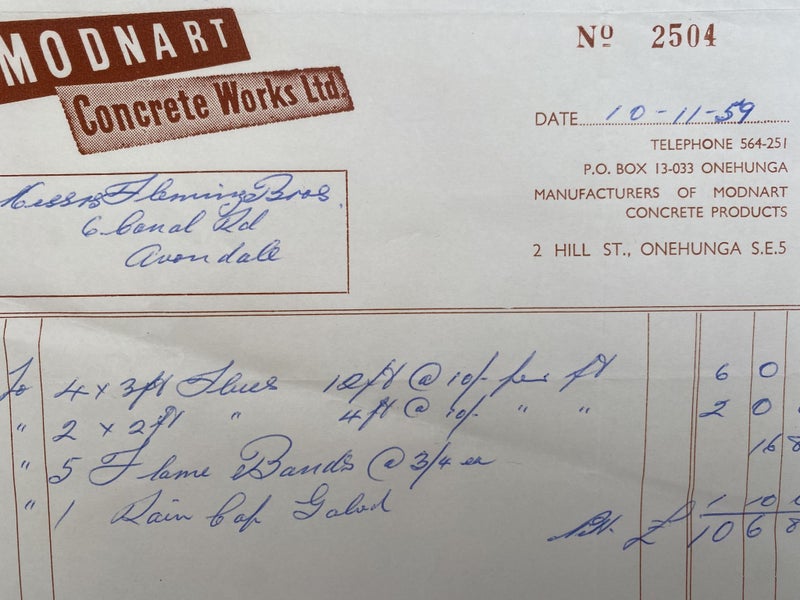 MODNART
Concrete Works Ltd.
Nº 2504
DATE 10-11-59
TELEPHONE 564-251
P.O. BOX 13-033 ONEHUNGA
MANUFACTURERS OF MODNART
CONCRETE PRODUCTS
2 HILL ST., ONEHUNGA S.E.5
Messrs Fleming Bros.
6 Canal Rd
Avondale
To 4 x 3ft Flues 12ft @ 10/- per ft 6 0
" 2 x 2ft " 4ft @ 10/- " " 2 0
" 5 Flame Bands @ 3/4 ea 16 8
" 1 Rain Cap Galvd 1 10
£ 10 6 8